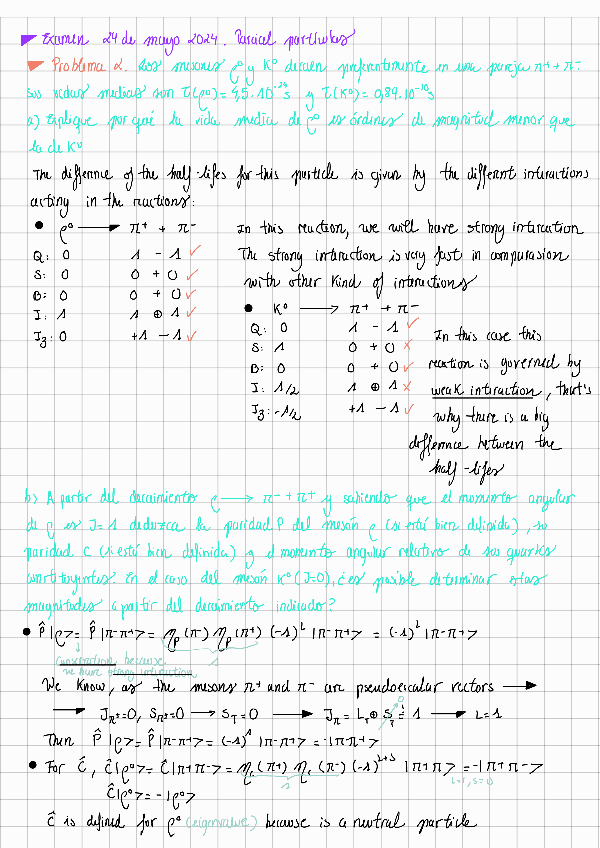 Examen 24 de mayo 2024. Parcial partículas
Problema 2. Los mesones ρ⁰ y K⁰ decaen preferentemente en una pareja π+ + π-
sus vidas medias son τ(ρ⁰) = 4,5·10⁻²⁴ s y τ(K⁰) = 0,89·10⁻¹⁰ s
a) Explique por qué la vida media de ρ⁰ es órdenes de magnitud menor que
la de K⁰
The difference of the half-lifes for this particle is given by the different interactions
acting in the reactions:
• ρ⁰ → π+ + π-
Q: 0 1 - 1 ✓
S: 0 0 + 0 ✓
B: 0 0 + 0 ✓
I: 1 1 ⊕ 1 ✓
I₃: 0 +1 -1 ✓
In this reaction, we will have strong interaction
The strong interaction is very fast in comparasion
with other kind of interactions
• K⁰ → π+ + π-
Q: 0 1 - 1 ✓
S: 1 0 + 0 ×
B: 0 0 + 0 ✓
I: 1/2 1 ⊕ 1 ×
I₃: -1/2 +1 -1 ✓
In this case this
reaction is governed by
weak interaction, that's
why there is a big
difference between the
half-lifes
b) A partir del decaimiento ρ → π- + π+ y sabiendo que el momento angular
de ρ es J=1 deduzca la paridad P del mesón ρ (si está bien definida), su
paridad C (si está bien definida) y el momento angular relativo de sus quarks
constituyentes. En el caso del mesón K⁰ (J=0), ¿es posible determinar estas
magnitudes a partir del decaimiento indicado?
• P̂|ρ> = P̂|π-π+> = ηp(π-) ηp(π+) (-1)^L |π-π+> = (-1)^L |π-π+>
1
Conservation because
we have strong interaction
We know, as the mesons π+ and π- are pseudoescalar vectors →
→ Jπ±=0, Sπ±=0 → S_T=0 → Jπ = L_r ⊕ S_T = 1 → L=1
0
Then P̂|ρ> = P̂|π-π+> = (-1)¹ |π-π+> = -|π-π+>
• For Ĉ, Ĉ|ρ⁰> = Ĉ|π+π-> = ηc(π+) ηc(π-) (-1)^{L+S} |π+π-> = -|π+π->
1 L=1, S=0
Ĉ|ρ⁰> = -|ρ⁰>
Ĉ is defined for ρ⁰ (eigenvalue) because is a neutral particle